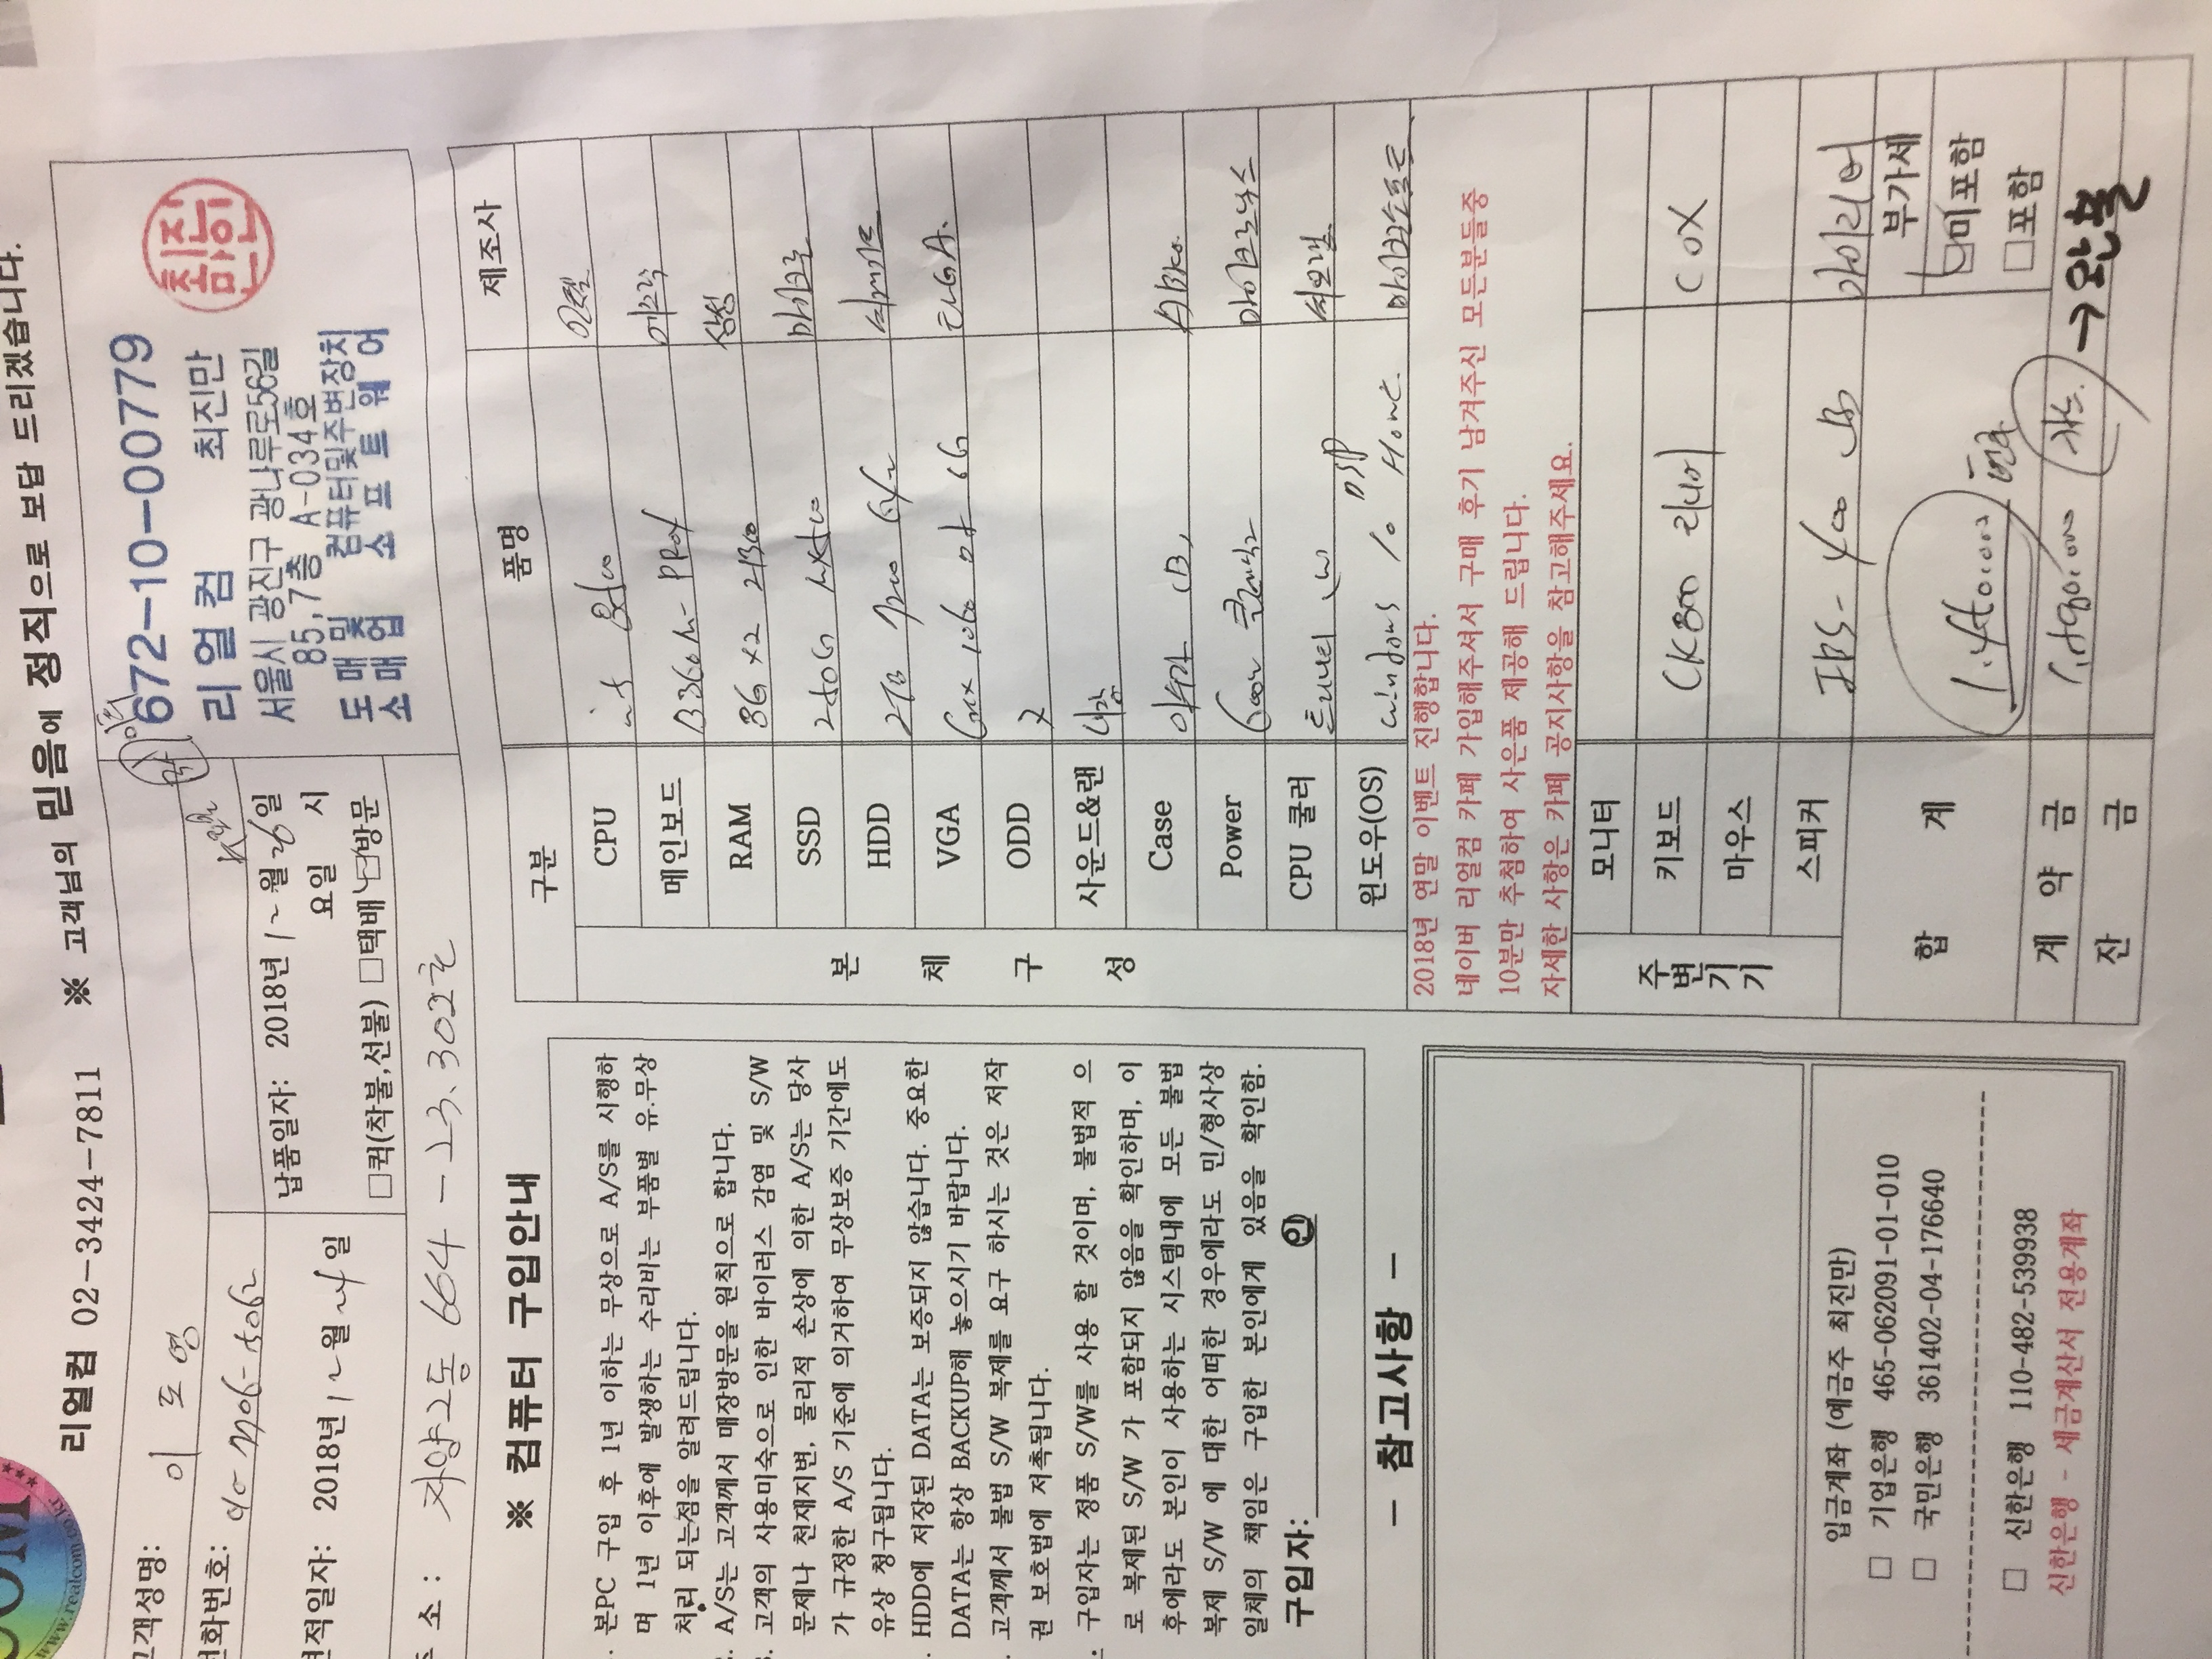 리얼컴 02-3424-7811 ※ 고객님의 믿음에 정직으로 보답 드리겠습니다.
www.realcom
고객성명: 이 도 영
전화번호:
견적일자: 2018년 월 일
납품일자: 2018년 월 26일
요일 시
□퀵(착불,선불) □택배 □방문
주 소 : 자양2동 664-23. 302호
672-10-00779
리얼컴 최진만
서울시 광진구 광나루로56길
85,7층 A-034호
도매및 컴퓨터및주변장치
소매업 소프트웨어
최진만인
※ 컴퓨터 구입안내
. 본PC 구입 후 1년 이하는 무상으로 A/S를 시행하
며 1년 이후에 발생하는 수리비는 부품별 유.무상
처리 되는점을 알려드립니다.
. A/S는 고객께서 매장방문을 원칙으로 합니다.
3. 고객의 사용미숙으로 인한 바이러스 감염 및 S/W
문제나 천재지변, 물리적 손상에 의한 A/S는 당사
가 규정한 A/S 기준에 의거하여 무상보증 기간에도
유상 청구됩니다.
. HDD에 저장된 DATA는 보증되지 않습니다. 중요한
DATA는 항상 BACKUP해 놓으시기 바랍니다.
. 고객께서 불법 S/W 복제를 요구 하시는 것은 저작
권 보호법에 저촉됩니다.
. 구입자는 정품 S/W를 사용 할 것이며, 불법적 으
로 복제된 S/W 가 포함되지 않음을 확인하며, 이
후에라도 본인이 사용하는 시스템내에 모든 불법
복제 S/W 에 대한 어떠한 경우에라도 민/형사상
일체의 책임은 구입한 본인에게 있음을 확인함.
구입자: 인
- 참고사항 -
입금계좌 (예금주 최진만)
□ 기업은행 465-062091-01-010
□ 국민은행 361402-04-176640
□ 신한은행 110-482-539938
신한은행 - 세금계산서 전용계좌
구분 품명 제조사
본체구성
CPU i5 8500 인텔
메인보드 B360M-PRO4 에즈락
RAM 8G x2 21300 삼성
SSD 250G MX500 마이크론
HDD 2TB 7200 64M 씨게이트
VGA GTX 1060 6G EVGA.
ODD X
사운드&랜 내장
Case ABKO.
Power 600W 마이크로닉스
CPU 쿨러 써모랩
윈도우(OS) windows 10 Home DSP 마이크로소프트
2018년 연말 이벤트 진행합니다.
네이버 리얼컴 카페 가입해주셔서 구매 후기 남겨주신 모든분들중
10분만 추첨하여 사은품 제공해 드립니다.
자세한 사항은 카페 공지사항을 참고해주세요.
주변기기
모니터
키보드 CK800 리니어 COX
마우스
스피커 JBS-400 브리츠
합 계 현금
부가세
□미포함
□포함
계 약 금 카드.
잔 금